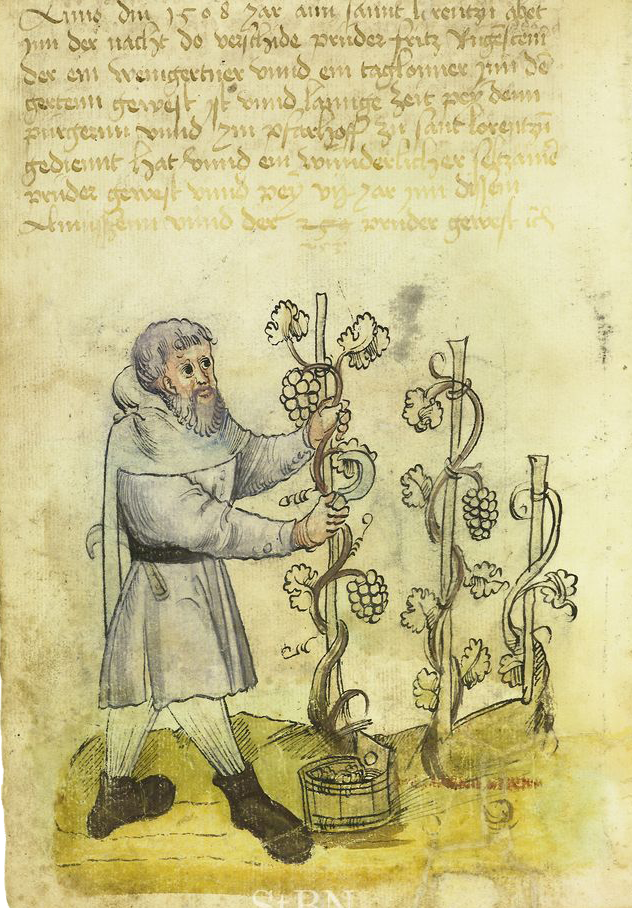 Anno dm 1508 Jar ann sannt lorentzn abet
Inn der nacht do verschide pruder fritz
der ein weingertner vnnd ein taglonner Inn de
gertenn gewest ist vnnd lannge Zeit pey denn
purgernn vnnd Im pfarhoff zu sant lorentzn
gediennt hat vnnd ein wunderlicher seltzame
pruder gewest vnnd pey vij Jar Inn disem
Almuszenn vnnd der pruder gewest ist
StBN